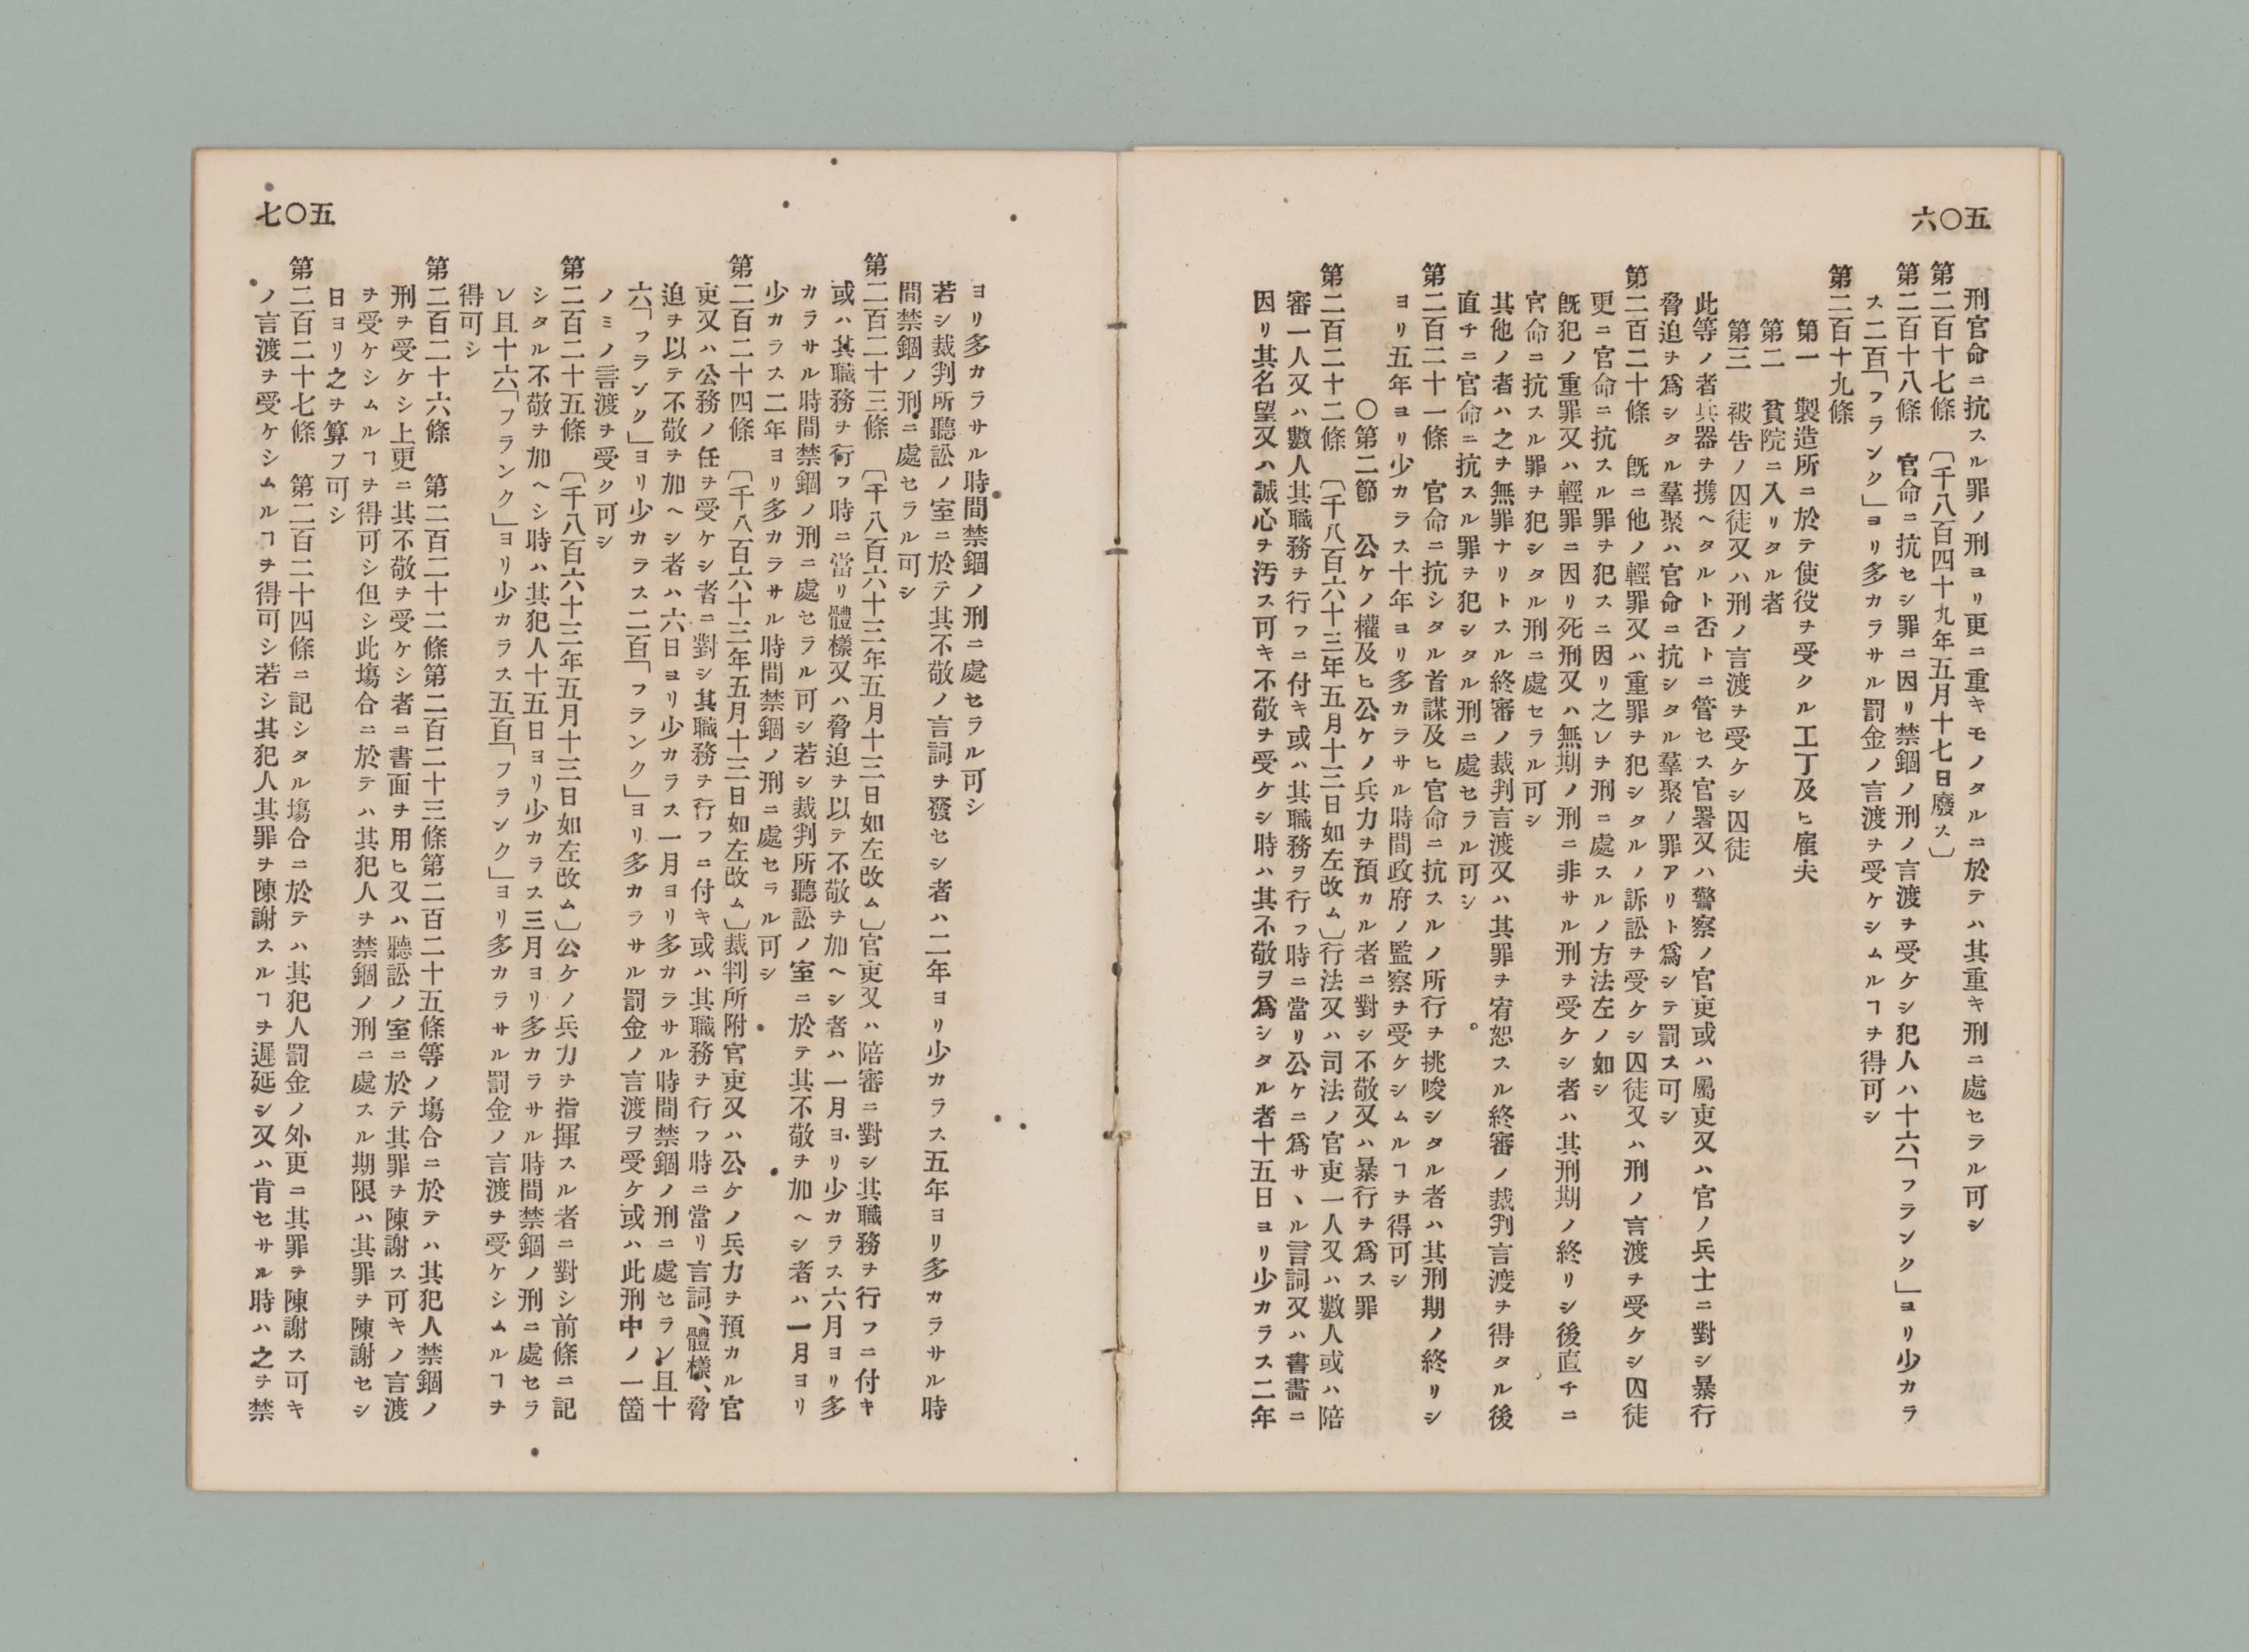 五〇六
刑官命ニ抗スル罪ノ刑ヨリ更ニ重キモノタルニ於テハ其重キ刑ニ處セラル可シ
第二百十七條　〔千八百四十九年五月十七日廢ス〕
第二百十八條　官命ニ抗セシ罪ニ因リ禁錮ノ刑ノ言渡ヲ受ケシ犯人ハ十六「フランク」ヨリ少カラ
ス二百「フランク」ヨリ多カラサル罰金ノ言渡ヲ受ケシムルヿヲ得可シ
第二百十九條
第一　製造所ニ於テ使役ヲ受クル工丁及ヒ雇夫
第二　貧院ニ入リタル者
第三　被告ノ囚徒又ハ刑ノ言渡ヲ受ケシ囚徒
此等ノ者兵器ヲ携ヘタルト否トニ管セス官署又ハ警察ノ官吏或ハ屬吏又ハ官ノ兵士ニ對シ暴行
脅迫ヲ爲シタル羣聚ハ官命ニ抗シタル羣聚ノ罪アリト爲シテ罰ス可シ
第二百二十條　旣ニ他ノ輕罪又ハ重罪ヲ犯シタルノ訴訟ヲ受ケシ囚徒又ハ刑ノ言渡ヲ受ケシ囚徒
更ニ官命ニ抗スル罪ヲ犯スニ因リ之レヲ刑ニ處スルノ方法左ノ如シ
旣犯ノ重罪又ハ輕罪ニ因リ死刑又ハ無期ノ刑ニ非サル刑ヲ受ケシ者ハ其刑期ノ終リシ後直チニ
官命ニ抗スル罪ヲ犯シタル刑ニ處セラル可シ
其他ノ者ハ之ヲ無罪ナリトスル終審ノ裁判言渡又ハ其罪ヲ宥恕スル終審ノ裁判言渡ヲ得タル後
直チニ官命ニ抗スル罪ヲ犯シタル刑ニ處セラル可シ
第二百二十一條　官命ニ抗シタル首謀及ヒ官命ニ抗スルノ所行ヲ挑唆シタル者ハ其刑期ノ終リシ
ヨリ五年ヨリ少カラス十年ヨリ多カラサル時間政府ノ監察ヲ受ケシムルヿヲ得可シ
〇第二節　公ケノ權及ヒ公ケノ兵力ヲ預カル者ニ對シ不敬又ハ暴行ヲ爲ス罪
第二百二十二條　〔千八百六十三年五月十三日如左改ム〕行法又ハ司法ノ官吏一人又ハ數人或ハ陪
審一人又ハ數人其職務ヲ行フニ付キ或ハ其職務ヲ行フ時ニ當リ公ケニ爲サヽル言詞又ハ書畵ニ
因リ其名望又ハ誠心ヲ汚ス可キ不敬ヲ受ケシ時ハ其不敬ヲ爲シタル者十五日ヨリ少カラス二年
五〇七
ヨリ多カラサル時間禁錮ノ刑ニ處セラル可シ
若シ裁判所聽訟ノ室ニ於テ其不敬ノ言詞ヲ發セシ者ハ二年ヨリ少カラス五年ヨリ多カラサル時
間禁錮ノ刑ニ處セラル可シ
第二百二十三條　〔千八百六十三年五月十三日如左改ム〕官吏又ハ陪審ニ對シ其職務ヲ行フニ付キ
或ハ其職務ヲ行フ時ニ當リ體樣又ハ脅迫ヲ以テ不敬ヲ加ヘシ者ハ一月ヨリ少カラス六月ヨリ多
カラサル時間禁錮ノ刑ニ處セラル可シ若シ裁判所聽訟ノ室ニ於テ其不敬ヲ加ヘシ者ハ一月ヨリ
少カラス二年ヨリ多カラサル時間禁錮ノ刑ニ處セラル可シ
第二百二十四條　〔千八百六十三年五月十三日如左改ム〕裁判所附官吏又ハ公ケノ兵力ヲ預カル官
吏又ハ公務ノ任ヲ受ケシ者ニ對シ其職務ヲ行フニ付キ或ハ其職務ヲ行フ時ニ當リ言詞、體樣、脅
迫ヲ以テ不敬ヲ加ヘシ者ハ六日ヨリ少カラス一月ヨリ多カラサル時間禁錮ノ刑ニ處セラレ且十
六「フランク」ヨリ少カラス二百「フランク」ヨリ多カラサル罰金ノ言渡ヲ受ケ或ハ此刑中ノ一箇
ノミノ言渡ヲ受ク可シ
第二百二十五條　〔千八百六十三年五月十三日如左改ム〕公ケノ兵力ヲ指揮スル者ニ對シ前條ニ記
シタル不敬ヲ加ヘシ時ハ其犯人十五日ヨリ少カラス三月ヨリ多カラサル時間禁錮ノ刑ニ處セラ
レ且十六「フランク」ヨリ少カラス五百「フランク」ヨリ多カラサル罰金ノ言渡ヲ受ケシムルヿヲ
得可シ
第二百二十六條　第二百二十二條第二百二十三條第二百二十五條等ノ塲合ニ於テハ其犯人禁錮ノ
刑ヲ受ケシ上更ニ其不敬ヲ受ケシ者ニ書面ヲ用ヒ又ハ聽訟ノ室ニ於テ其罪ヲ陳謝ス可キノ言渡
ヲ受ケシムルヿヲ得可シ但シ此塲合ニ於テハ其犯人ヲ禁錮ノ刑ニ處スル期限ハ其罪ヲ陳謝セシ
日ヨリ之ヲ算フ可シ
第二百二十七條　第二百二十四條ニ記シタル塲合ニ於テハ其犯人罰金ノ外更ニ其罪ヲ陳謝ス可キ
ノ言渡ヲ受ケシムルヿヲ得可シ若シ其犯人其罪ヲ陳謝スルヿヲ遲延シ又ハ肯セサル時ハ之ヲ禁